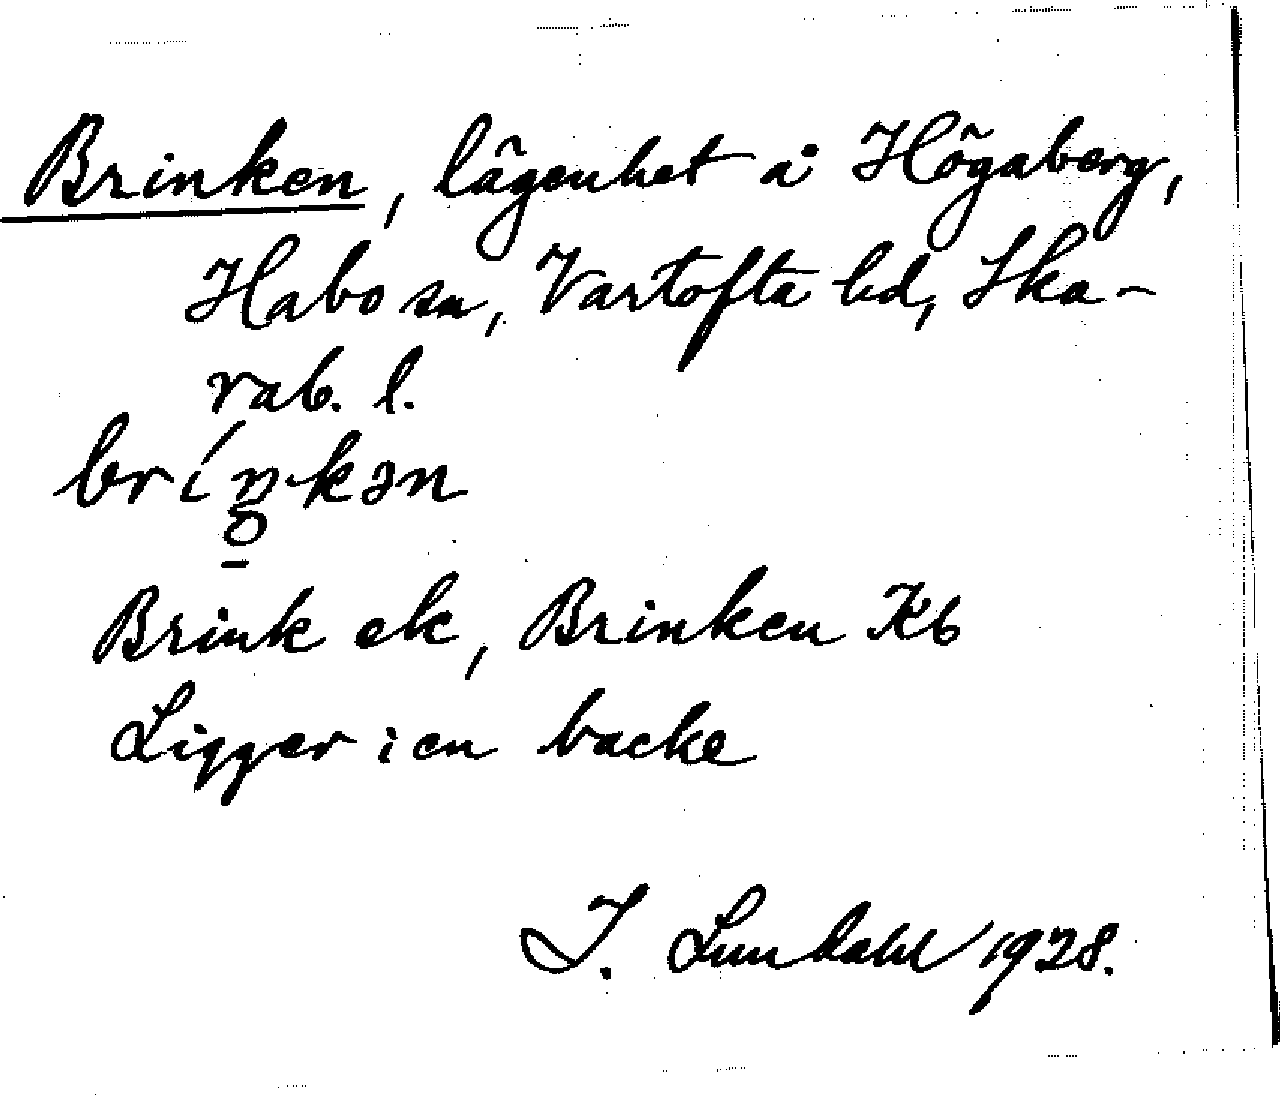 Brinken, lägenhet å Högaberg,
Habo sn, Vartofta hd, Ska-
rab. l.
bríŋ̥kən
Brink ek, Brinken Kb
Ligger i en backe
I. Lundahl 1928.